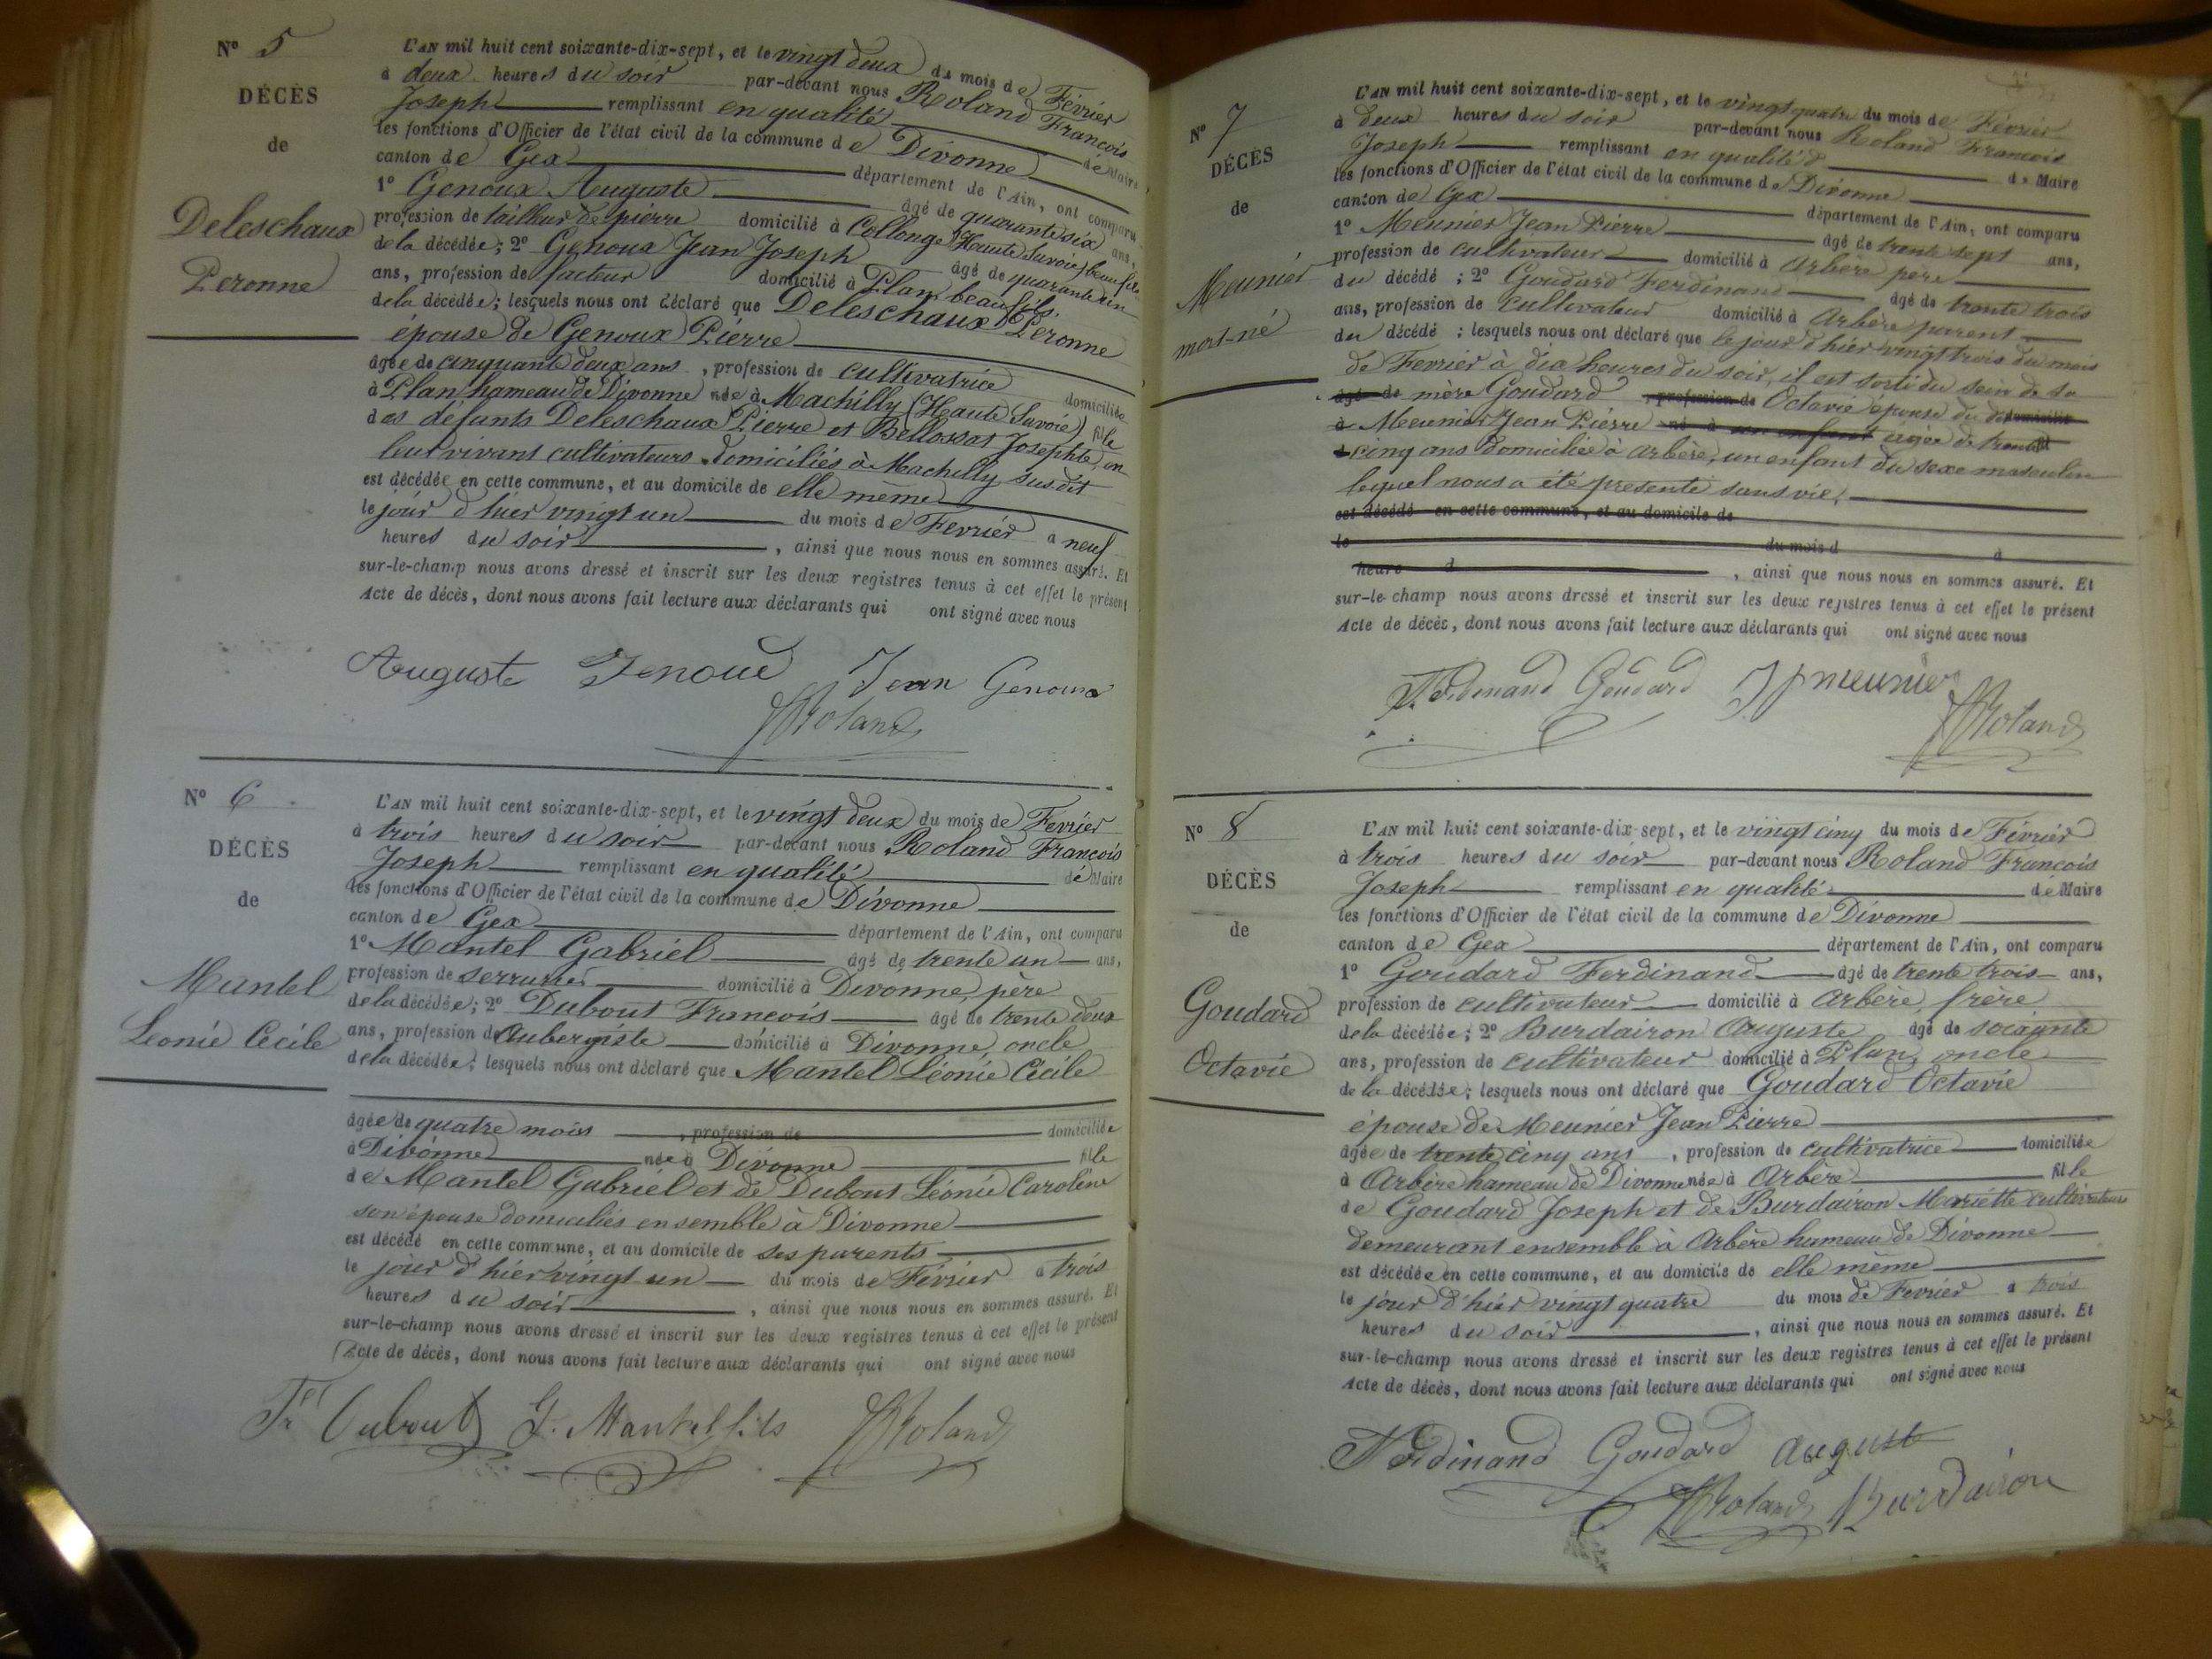 N° 5
DÉCÈS
de
Deleschaux
Peronne
L'AN mil huit cent soixante-dix-sept, et le vingt deux du mois de Février
à deux heures du soir par-devant nous Roland François
Joseph remplissant en qualité de Maire
les fonctions d'Officier de l'état civil de la commune de Divonne
canton de Gex département de l'Ain, ont comparu
1° Genoux Auguste âgé de quarante six ans,
profession de tailleur de pierre domicilié à Collonge (Haute Savoie) beau fils
de la décédée; 2° Genoux Jean Joseph âgé de quarante un
ans, profession de facteur domicilié à Plan beau fils.
de la décédée; lesquels nous ont déclaré que Deleschaux Peronne
épouse de Genoux Pierre
âgée de cinquante deux ans, profession de cultivatrice domiciliée
à Plan hameau de Divonne née à Machilly (Haute Savoie) fille
des défunts Deleschaux Pierre et Bellossat Josephte, en
leur vivant cultivateurs domiciliés à Machilly susdit
est décédée en cette commune, et au domicile de elle même
le jour d'hier vingt un du mois de Fevrier à neuf
heures du soir, ainsi que nous nous en sommes assuré. Et
sur-le-champ nous avons dressé et inscrit sur les deux registres tenus à cet effet le présent
Acte de décès, dont nous avons fait lecture aux déclarants qui ont signé avec nous
Auguste Jenoud Jean Genoux
Roland
N° 6
DÉCÈS
de
Mantel
Léonie Cécile
L'AN mil huit cent soixante-dix-sept, et le vingt deux du mois de Fevrier
à trois heures du soir par-devant nous Roland François
Joseph remplissant en qualité de Maire
les fonctions d'Officier de l'état civil de la commune de Divonne
canton de Gex département de l'Ain, ont comparu
1° Mantel Gabriel âgé de trente un ans,
profession de serrurier domicilié à Divonne, père
de la décédée; 2° Dubout François âgé de trente deux
ans, profession d'Aubergiste domicilié à Divonne, oncle
de la décédée; lesquels nous ont déclaré que Mantel Léonie Cécile
âgée de quatre mois, profession de domiciliée
à Divonne née à Divonne fille
de Mantel Gabriel et de Dubout Léonie Caroline
son épouse domiciliés ensemble à Divonne
est décédé en cette commune, et au domicile de ses parents
le jour d'hier vingt un du mois de Février à trois
heures du soir, ainsi que nous nous en sommes assuré. Et
sur-le-champ nous avons dressé et inscrit sur les deux registres tenus à cet effet le présent
Acte de décès, dont nous avons fait lecture aux déclarants qui ont signé avec nous
Fr Dubout G. Mantel fils Roland
N° 7
DÉCÈS
de
Meunier
mort-né
L'AN mil huit cent soixante-dix-sept, et le vingt quatre du mois de Février
à deux heures du soir par-devant nous Roland François
Joseph remplissant en qualité de Maire
les fonctions d'Officier de l'état civil de la commune de Divonne
canton de Gex département de l'Ain, ont comparu
1° Meunier Jean Pierre âgé de trente sept ans,
profession de cultivateur domicilié à Arbère père
du décédé; 2° Goudard Ferdinand âgé de trente trois
ans, profession de cultivateur domicilié à Arbère parent
du décédé: lesquels nous ont déclaré que le jour d'hier vingt trois du mois
de Fevrier à dix heures du soir, il est sorti du sein de sa
âgé de mère Goudard, profession de Octavie épouse du dit domicilié
à Meunier Jean Pierre né à un enfant âgée de trente
cinq ans domiciliée à Arbère, un enfant du sexe masculin
lequel nous a été présenté sans vie,
est décédé en cette commune, et au domicile de
le du mois d à
heure d, ainsi que nous nous en sommes assuré. Et
sur-le-champ nous avons dressé et inscrit sur les deux registres tenus à cet effet le présent
Acte de décès, dont nous avons fait lecture aux déclarants qui ont signé avec nous
Ferdinand Goudard J p meunier
Roland
N° 8
DÉCÈS
de
Goudard
Octavie
L'AN mil huit cent soixante-dix-sept, et le vingt cinq du mois de Février
à trois heures du soir par-devant nous Roland François
Joseph remplissant en qualité de Maire
les fonctions d'Officier de l'état civil de la commune de Divonne
canton de Gex département de l'Ain, ont comparu
1° Goudard Ferdinand âgé de trente trois ans,
profession de cultivateur domicilié à Arbère, frère
de la décédée; 2° Burdairon Auguste âgé de soixante
ans, profession de cultivateur domicilié à Plan, oncle
de la décédée; lesquels nous ont déclaré que Goudard Octavie
épouse de Meunier Jean Pierre
âgée de trente cinq ans, profession de cultivatrice domiciliée
à Arbère hameau de Divonne née à Arbère fille
de Goudard Joseph et de Burdairon Mariette cultivateurs
demeurant ensemble à Arbère hameau de Divonne
est décédée en cette commune, et au domicile de elle même
le jour d'hier vingt quatre du mois de Fevrier à trois
heures du soir, ainsi que nous nous en sommes assuré. Et
sur-le-champ nous avons dressé et inscrit sur les deux registres tenus à cet effet le présent
Acte de décès, dont nous avons fait lecture aux déclarants qui ont signé avec nous
Ferdinand Goudard August
Roland Burdairon